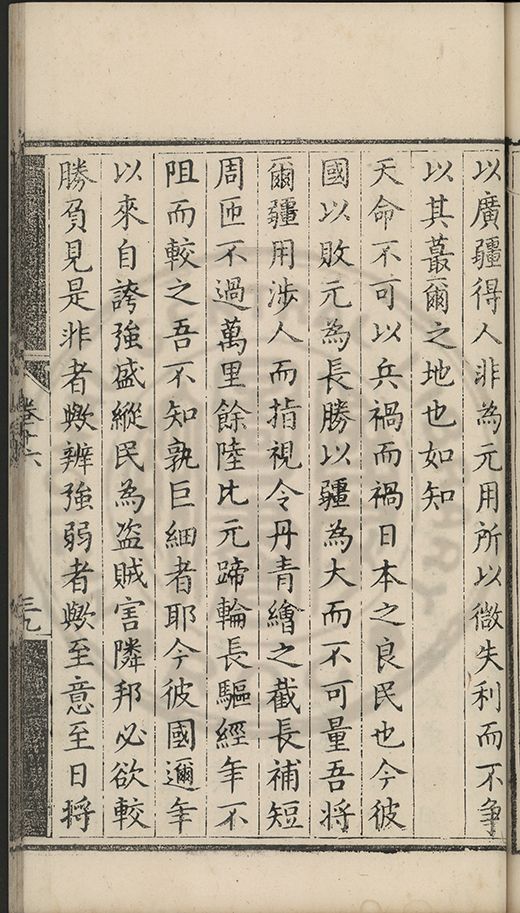 以廣疆得人非為元用所以微失利而不争
以其蕞爾之地也如知
天命不可以兵禍而禍日本之良民也今彼
國以敗元為長勝以疆為大而不可量吾将
爾疆用涉人而指視令丹青繪之截長補短
周匝不過萬里餘陸比元蹄輪長驅經年不
阻而較之吾不知孰巨細者耶今彼國邇年
以來自誇強盛縱民為盗賊害隣邦必欲較
勝負見是非者歟辨強弱者歟至意至日将